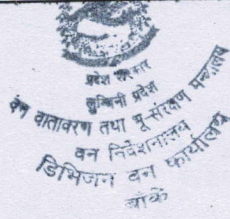 प्रदेश सरकार
लुम्बिनी प्रदेश
वन वातावरण तथा भू-संरक्षण मन्त्रालय
वन निर्देशनालय
डिभिजन वन कार्यालय
बाँके